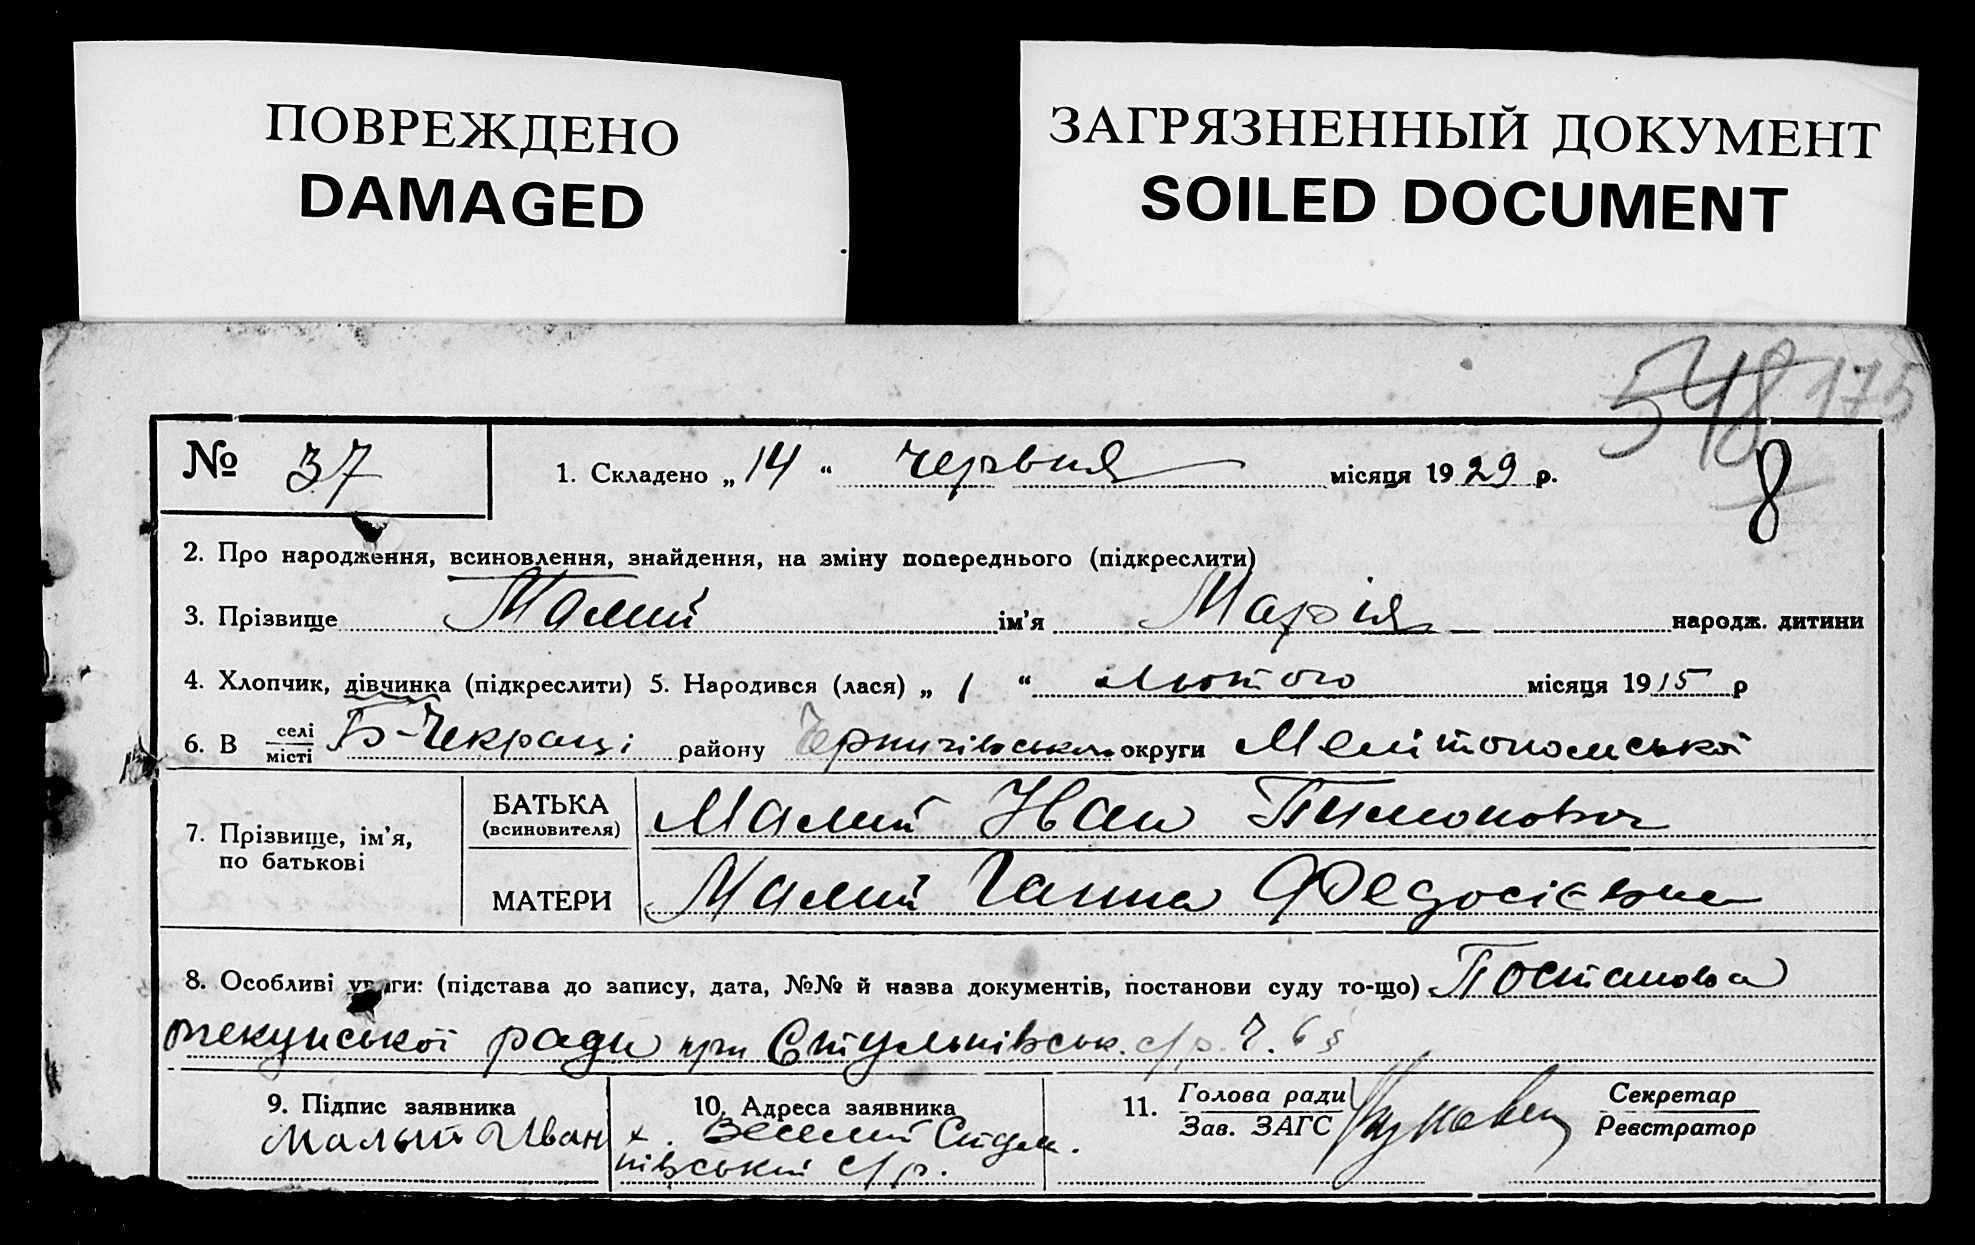 ПОВРЕЖДЕНО
DAMAGED
ЗАГРЯЗНЕННЫЙ ДОКУМЕНТ
SOILED DOCUMENT
548 175
8
№ 37
1. Складено „ 14 “ червня місяця 1929 р.
2. Про народження, всиновлення, знайдення, на зміну попереднього (підкреслити)
3. Прізвище Малий ім'я Марія народж. дитини
4. Хлопчик, дівчинка (підкреслити) 5. Народився (лася) „ 1 “ лютого місяця 1915 р
6. В селі місті Б-Чекраці району Чернигівськом округи Мелітопольської
7. Прізвище, ім'я, по батькові
БАТЬКА (всиновителя) Малий Иван Тимонович
МАТЕРИ Малий Ганна Федосієвна
8. Особливі уваги: (підстава до запису, дата, №№ й назва документів, постанови суду то-що) Постанова
опекунської ради при Стульнівськ. с/р. Ч. 6
9. Підпис заявника
Малый Иван
10. Адреса заявника
х. Веселий Стул.
нівський с/р.
11. Голова ради
Зав. ЗАГС
Секретар
Реєстратор